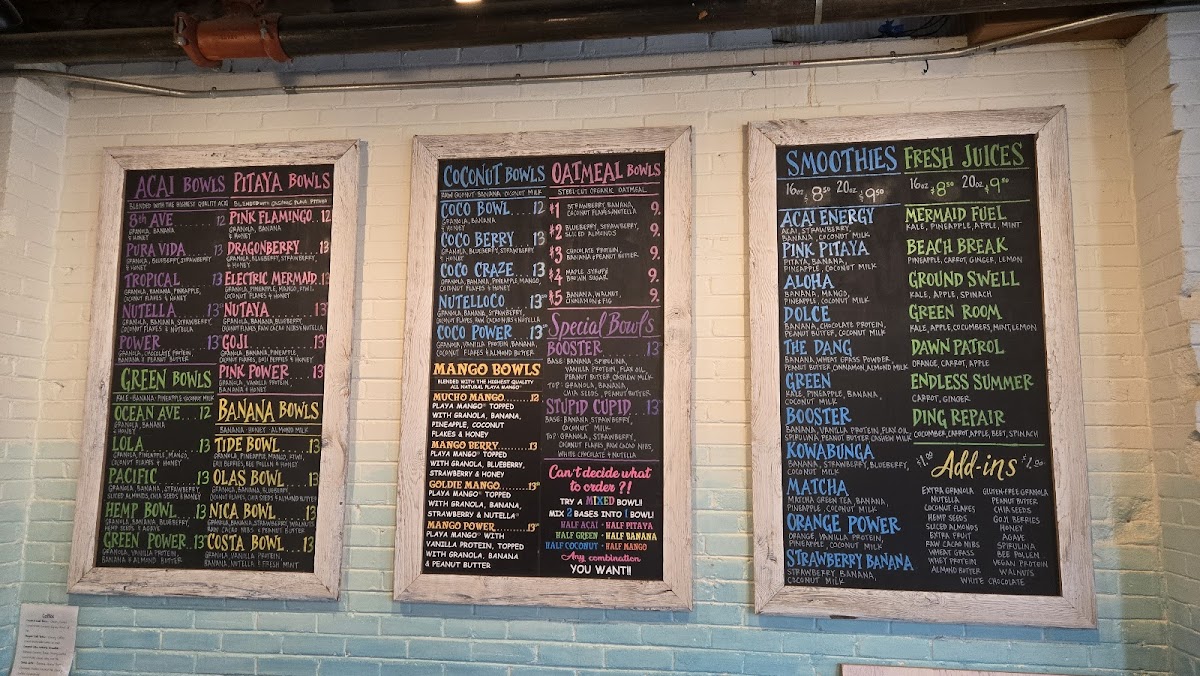 ACAI BOWLS
BLENDED WITH THE HIGHEST QUALITY ACAI
8th AVE 12
GRANOLA, BANANA
& HONEY
PURA VIDA 13
GRANOLA, BLUEBERRY, STRAWBERRY
& HONEY
TROPICAL 13
GRANOLA, BANANA, PINEAPPLE,
COCONUT FLAKES & HONEY
NUTELLA 13
GRANOLA, BANANA, STRAWBERRY,
COCONUT FLAKES & NUTELLA
POWER 13
GRANOLA, CHOCOLATE PROTEIN,
BANANA & PEANUT BUTTER
GREEN BOWLS
KALE · BANANA · PINEAPPLE · COCONUT MILK
OCEAN AVE 12
GRANOLA, BANANA
& HONEY
LOLA 13
GRANOLA, PINEAPPLE, MANGO,
COCONUT FLAKES & HONEY
PACIFIC 13
GRANOLA, BANANA, STRAWBERRY
SLICED ALMONDS, CHIA SEEDS & HONEY
HEMP BOWL 13
GRANOLA, BANANA, BLUEBERRY,
HEMP SEEDS & AGAVE
GREEN POWER 13
GRANOLA, VANILLA PROTEIN,
BANANA & ALMOND BUTTER
PITAYA BOWLS
BLENDED WITH ORGANIC PITAYA
PINK FLAMINGO 12
GRANOLA, BANANA
& HONEY
DRAGONBERRY 13
GRANOLA, BLUEBERRY, STRAWBERRY
& HONEY
ELECTRIC MERMAID 13
GRANOLA, PINEAPPLE, MANGO, KIWI,
COCONUT FLAKES & HONEY
NUTAYA 13
GRANOLA, BANANA, BLUEBERRY
COCONUT FLAKES RAW CACAO NIBS & NUTELLA
GOJI 13
GRANOLA, BANANA, PINEAPPLE
COCONUT FLAKES, GOJI BERRIES & HONEY
PINK POWER 13
GRANOLA, VANILLA PROTEIN,
BANANA & HONEY
BANANA BOWLS
BANANA · HONEY · ALMOND MILK
TIDE BOWL 13
GRANOLA, BANANA, PINEAPPLE, MANGO, KIWI,
GOJI BERRIES, BEE POLLEN & HONEY
OLAS BOWL 13
GRANOLA, BANANA, BLUEBERRY,
COCONUT FLAKES, CHIA & ALMOND BUTTER
NICA BOWL 13
GRANOLA, BANANA, STRAWBERRY, WALNUTS
RAW CACAO NIBS & PEANUT BUTTER
COSTA BOWL 13
GRANOLA, VANILLA PROTEIN,
BANANA, NUTELLA & FRESH MINT
COCONUT BOWLS
RAW COCONUT · BANANA · COCONUT MILK
COCO BOWL 12
GRANOLA, BANANA
& HONEY
COCO BERRY 13
GRANOLA, BLUEBERRY, STRAWBERRY
& HONEY
COCO CRAZE 13
GRANOLA, BANANA, PINEAPPLE, MANGO,
COCONUT FLAKES & HONEY
NUTELLOCO 13
GRANOLA, BANANA, STRAWBERRY,
COCONUT FLAKES, RAW CACAO NIBS & NUTELLA
COCO POWER 13
GRANOLA, VANILLA PROTEIN, BANANA,
COCONUT FLAKES & ALMOND BUTTER
MANGO BOWLS
BLENDED WITH THE HIGHEST QUALITY
ALL NATURAL PLAYA MANGO
MUCHO MANGO 12
PLAYA MANGO® TOPPED
WITH GRANOLA, BANANA,
PINEAPPLE, COCONUT
FLAKES & HONEY
MANGO BERRY 13
PLAYA MANGO® TOPPED
WITH GRANOLA, BLUEBERRY,
STRAWBERRY & HONEY
GOLDIE MANGO 13
PLAYA MANGO® TOPPED
WITH GRANOLA, BANANA,
STRAWBERRY & NUTELLA
MANGO POWER 13
PLAYA MANGO® WITH
VANILLA PROTEIN, TOPPED
WITH GRANOLA, BANANA
& PEANUT BUTTER
OATMEAL BOWLS
STEEL-CUT ORGANIC OATMEAL
#1 STRAWBERRY, BANANA, 9.
COCONUT FLAKES & NUTELLA
#2 BLUEBERRY, STRAWBERRY, 9.
SLICED ALMONDS
#3 CHOCOLATE PROTEIN, 9.
BANANA & PEANUT BUTTER
#4 MAPLE SYRUP & 9.
BROWN SUGAR
#5 BANANA, WALNUT, 9.
CINNAMON & FIG
Special Bowls
BOOSTER 13
BASE: BANANA, SPIRULINA,
VANILLA PROTEIN, FLAX OIL
PEANUT BUTTER CASHEW MILK
TOP: GRANOLA, BANANA,
CHIA SEEDS, PEANUT BUTTER
STUPID CUPID 13
BASE: BANANA STRAWBERRY,
COCONUT MILK
TOP: GRANOLA, STRAWBERRY,
COCONUT FLAKES RAW CACAO NIBS,
WHITE CHOCOLATE & NUTELLA
Can't decide what
to order?!
TRY A MIXED BOWL!!
MIX 2 BASES INTO 1 BOWL!
HALF ACAI · HALF PITAYA
HALF GREEN · HALF BANANA
HALF COCONUT · HALF MANGO
Any combination
YOU WANT!!
SMOOTHIES
16oz $8.50 20oz $9.50
ACAI ENERGY
ACAI, STRAWBERRY,
BANANA, COCONUT MILK
PINK PITAYA
PITAYA, BANANA,
PINEAPPLE, COCONUT MILK
ALOHA
BANANA, MANGO,
PINEAPPLE, COCONUT MILK
DOLCE
BANANA, CHOCOLATE PROTEIN,
PEANUT BUTTER, COCONUT MILK
THE DANG
BANANA, WHEAT GRASS POWDER,
PEANUT BUTTER CINNAMON, ALMOND MILK
GREEN
KALE, PINEAPPLE, BANANA,
COCONUT MILK
BOOSTER
BANANA, VANILLA PROTEIN, FLAX OIL
SPIRULINA PEANUT BUTTER CASHEW MILK
KOWABUNGA
BANANA, STRAWBERRY, BLUEBERRY,
COCONUT MILK
MATCHA
MATCHA GREEN TEA, BANANA,
PINEAPPLE, COCONUT MILK
ORANGE POWER
ORANGE, VANILLA PROTEIN,
PINEAPPLE, COCONUT MILK
STRAWBERRY BANANA
STRAWBERRY BANANA,
COCONUT MILK
FRESH JUICES
16oz $8.50 20oz $9.50
MERMAID FUEL
KALE, PINEAPPLE, APPLE, MINT
BEACH BREAK
PINEAPPLE, CARROT, GINGER, LEMON
GROUND SWELL
KALE, APPLE, SPINACH
GREEN ROOM
KALE, APPLE, CUCUMBERS, MINT, LEMON
DAWN PATROL
ORANGE, CARROT, APPLE
ENDLESS SUMMER
CARROT, GINGER
DING REPAIR
CUCUMBER, CARROT, APPLE, BEET, SPINACH
Add-ins
EXTRA GRANOLA
NUTELLA
COCONUT FLAKES
HEMP SEEDS
SLICED ALMONDS
EXTRA FRUIT
RAW CACAO NIBS
WHEAT GRASS
WHEY PROTEIN
ALMOND BUTTER
GLUTEN-FREE GRANOLA
PEANUT BUTTER
CHIA SEEDS
GOJI BERRIES
HONEY
AGAVE
SPIRULINA
BEE POLLEN
VEGAN PROTEIN
WALNUTS
WHITE CHOCOLATE
Coffee